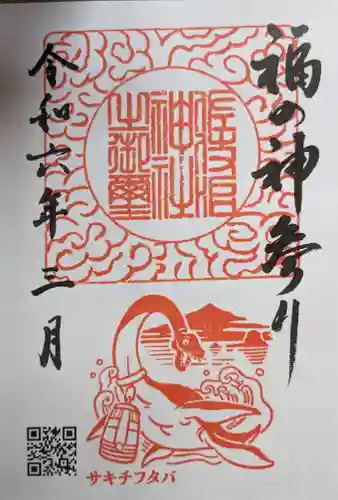 福の神参り
令和六年三月
神社
之御璽
サキチフタバ